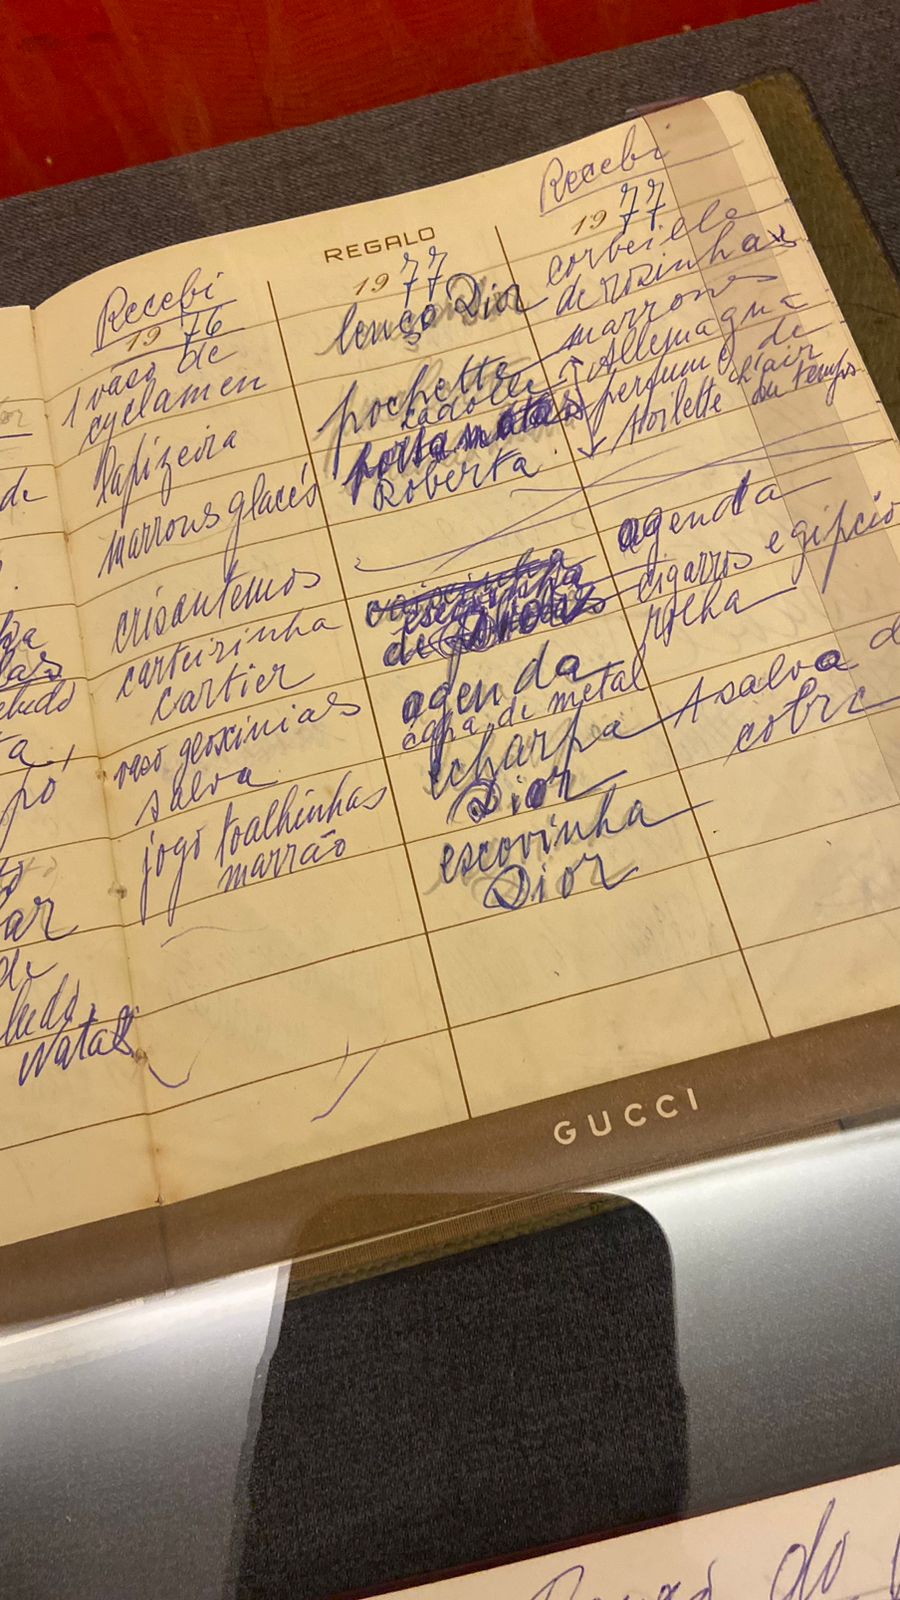 Recebi
1976
1 vaso de
cyclamen
lapizeira
marrons glacés
crisantemos
carteirinha
cartier
vaso gloxinias
salva
jogo toalhinhas
marrão
REGALO
1977
lenço Dior
pochette
porta notas
Roberta
agenda
capa de metal
echarpe
Dior
escovinha
Dior
Recebi
1977
corbeille
de rosinhas
marrones
Allemagna
perfume de
toilette L'air
du temps
agenda
cigarros egipcio
rolha
1 salva d
cobre
de
ar
de
ludo
Natal
GUCCI
do